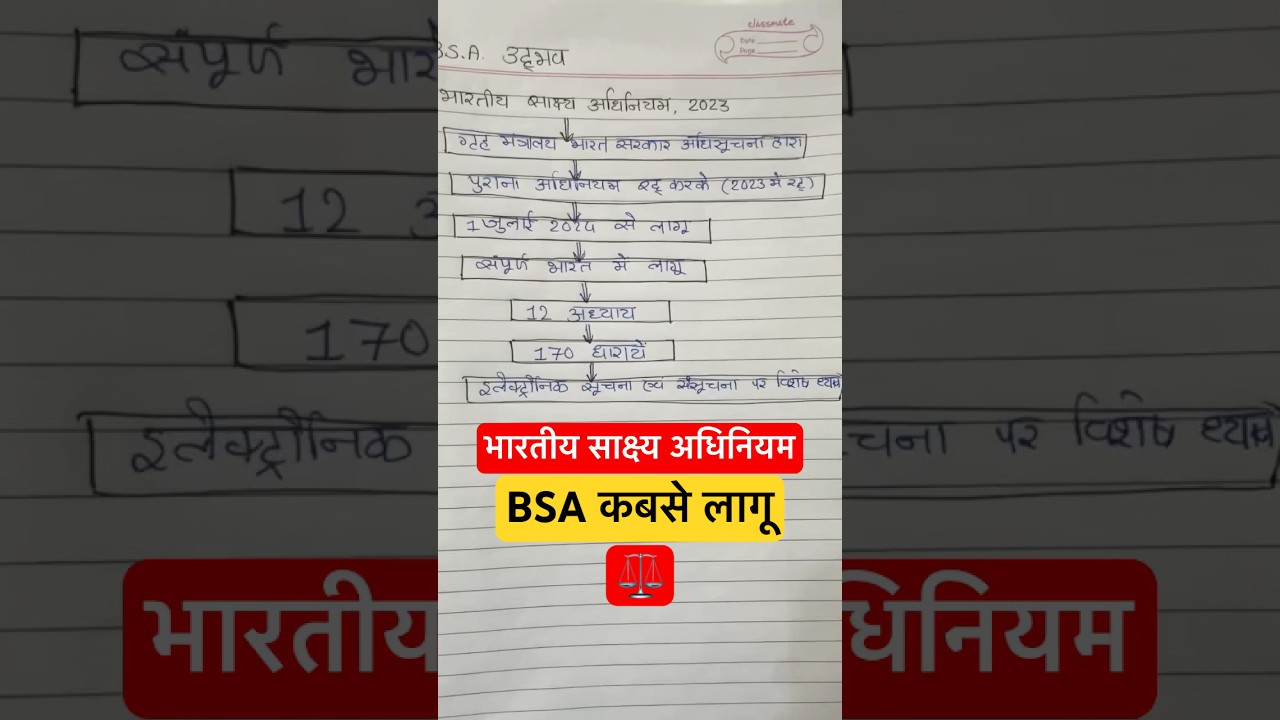 classmate
Date
Page
B.S.A. उद्भव
भारतीय साक्ष्य अधिनियम, 2023
गृह मंत्रालय भारत सरकार अधिसूचना द्वारा
पुराना अधिनियम रद्द करके (2023 मे रद्द)
1 जुलाई 2024 से लागू
संपूर्ण भारत में लागू
12 अध्याय
170 धारायें
इलेक्ट्रॉनिक सूचना एवं संसूचना पर विशेष ध्यान
भारतीय साक्ष्य अधिनियम
BSA कबसे लागू